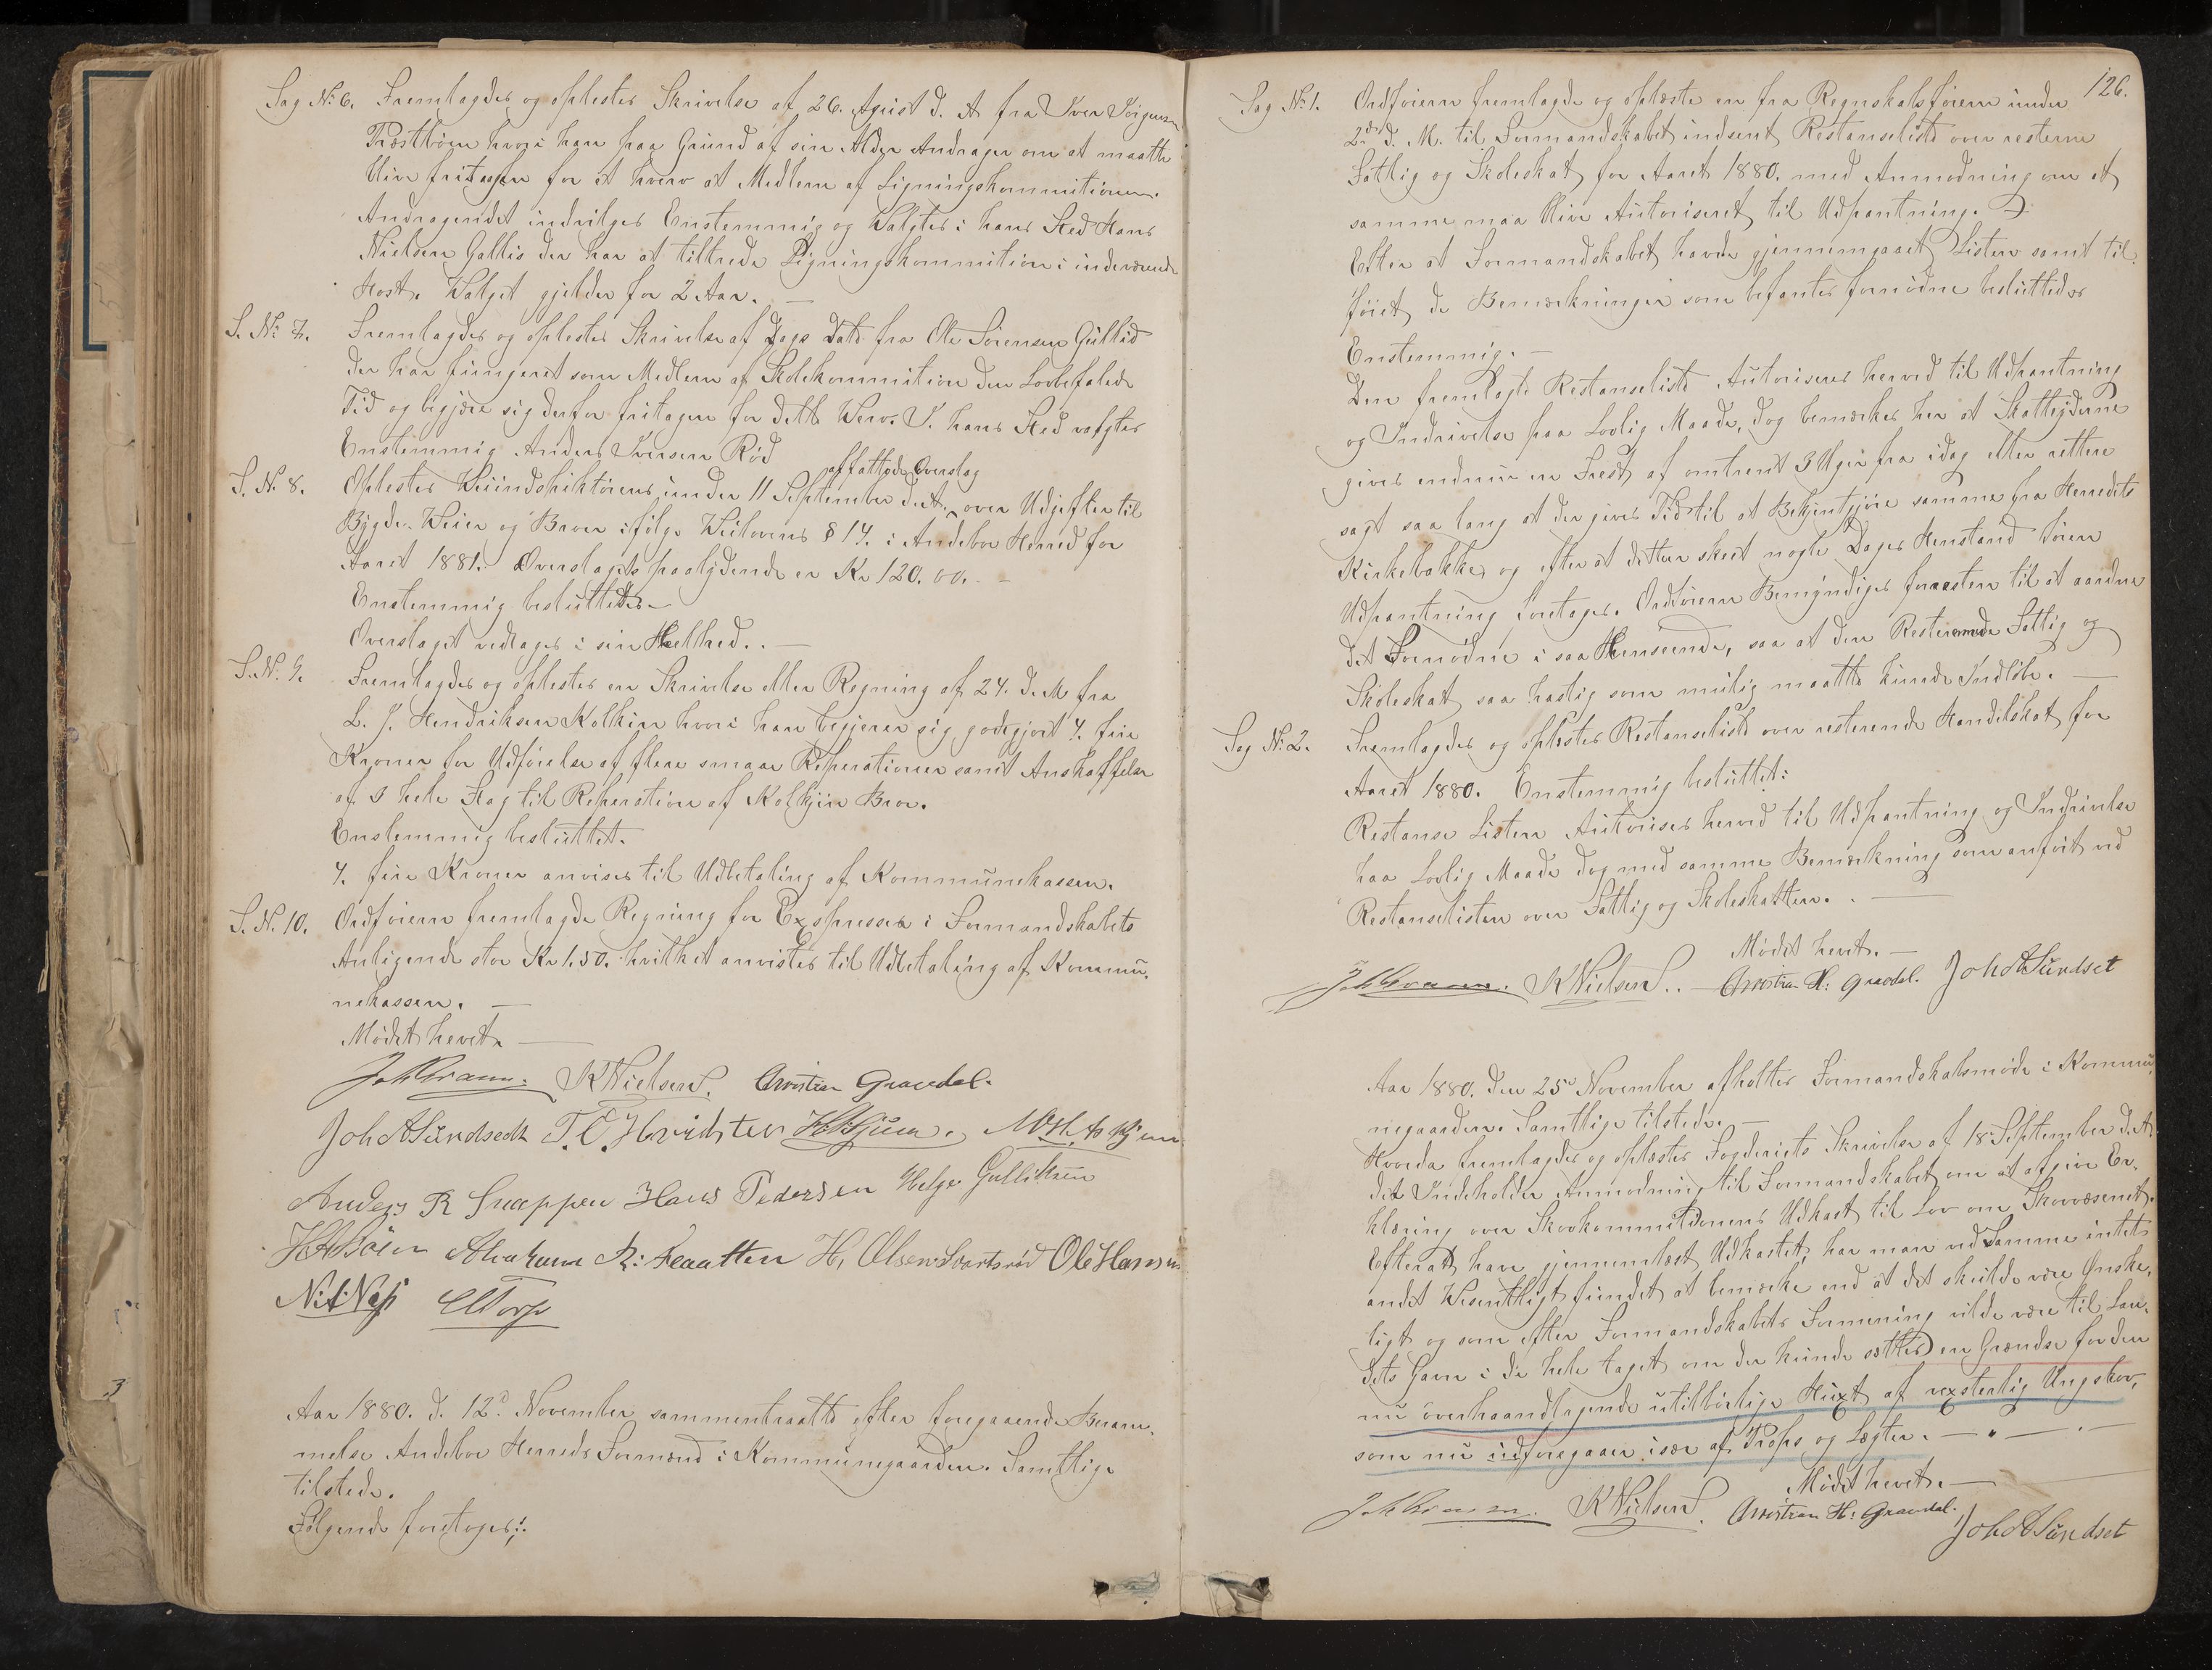 Sag No 6. Fremlagdes og oplestes Skrivelse af 26. August d. A fra Iver Jørgensen
Præstbøen hvori han paa Grund af sin Alder Andrager om at maatte
blive fritagen for et hverv at Medlem af Ligningskommitionen.
Andragendet indvilges Enstemmig og Valgtes i hans Sted Hans
Nielsen Gallis der har at tiltrede Ligningskommition i indeværende
Høst. Valget gjelder for 2 Aar. —
S. No 7. Fremlagdes og oplestes Skrivelse af Dags Dato fra Ole Sørensen Gullid
der har fungeret som Medlem af Skolekommition den Lovbefalede
Tid og begjære sig derfor fritagen for dette Werv. I hans Sted valgtes
Enstemmig Anders Iversen Rød
affattede Overslag
S. N. 8. Oplestes Veiindspiktørens under 11 September d. A. over Udgifter til
Bygde-Veier og Broer ifølge Veilovens § 14. i Andebo Herred for
Aaret 1881. Overslagets paalydende er Kr 120.00. –
Enstemmig besluttedes –
Overslaget vedtages i sin Helhed. . —
S. N. 9. Fremlagdes og oplestes en Skrivelse eller Regning af 24. d. M fra
L. J. Hendriksen Kolkin hvori han begjerer sig godtgjort 4. fire
Kroner for Udførelse af flere smaae Reperationer samt Anskaffelse
af 3 hele Flag til Reperation af Kolkjin Bro.
Enstemmig besluttet.
4. fire Kroner anvises til Udbetaling af Kommunekassen.
S. N. 10. Ordføieren fremlagde Regning for Expresser i Formandskabets
Anligende stor Kr 1.50. hvilket anvistes til Udbetaling af Kommu-
nekassen. —
Mødet hevet. —
K Nielsen. Christian Gravdal.
Joh A Sundsedt T. C. Hvidsten
Anders R Snappen Hans Pedersen Helge Gulliksen
Abraham H. Olsen Svartsrød Ole Hansen
Aar 1880. d. 12d November sammentraatte efter foregaaende Beram-
melse Andebo Herreds Formænd i Kommunegaarden. Samtlige
tilstede.
Følgende foretoges:
126.
Sag No 1. Ordføieren fremlagde og oplæste en fra Regnskabsføreren under
2d d. M. til Formandskabet indsent Restanseliste over resterne
Fattig og Skoleskat for Aaret 1880. med Anmodning om at
samme maa blive Autoriseret til Udpantning.
Efter at Formandskabet havde gjennemgaaet Listen samt til-
føiet de Bemærkninger som befantes fornødne besluttedes
Enstemmig. —
Den fremlagte Restanseliste Autoriseres herved til Udpantning
og Indrivelse paa Lovlig Maade, dog bemærkes her at Skatteyderne
gives endnu en Frest af omtrent 3 Uger fra idag eller rettere
sagt saa lang at der gives Tid til at Bekjentgjøre samme fra Herredets
Kirkebakke, og efter at dette er skeet nogle Dages Henstand føren
Udpantning foretages. Ordføieren Bemyndiges foræsten til at aardne
det Fornødne i saa Henseende, saa at den Resterende Fattig og
Skoleskat saa hastig som mulig maatte kunde Indløbe. —
Sag No 2. Fremlagdes og oplestes Restanseliste over resterende Handelskat for
Aaret 1880. Enstemmig besluttet:
Restanse Listen Autoriseres herved til Udpantning og Indrivelse
paa Lovlig Maade dog med samme Bemærkning som anført ved
Restanselisten over Fattig og Skoleskatten. . —
Mødet hevet. —
K Nielsen.. Christian H: Gravdal. Joh A Sundset
Aar 1880. den 25d November afholtes Formandskabsmøde i Kommu-
negaarden. Samtlige tilstede. —
Hvorda fremlagdes og oplæstes Fogderiets Skrivelse af 18 September d. A.
det Indeholder Anmodning til Formandskabet om at afgive Er-
klæring over Skovkommitionens Udkast til Lov om Skovvæsenet.
Efter at have gjennemlæst Udkastet, har man ved Samme intet
andet Wesentligt fundet at bemærke end at det skulde være Ønske-
ligt og som efter Formandskabets Formening vilde være til Lan-
dets Gavn i de hele taget om der kunde sættes en Grændse for den
nu overhaandtagende utilbørlige Huxt af vexsterlig Ungskov,
som nu udforegaaer især af Props og Lægter. —
Mødet hevet. —
K Nielsen. Christian H: Gravdal.
Joh A Sundset